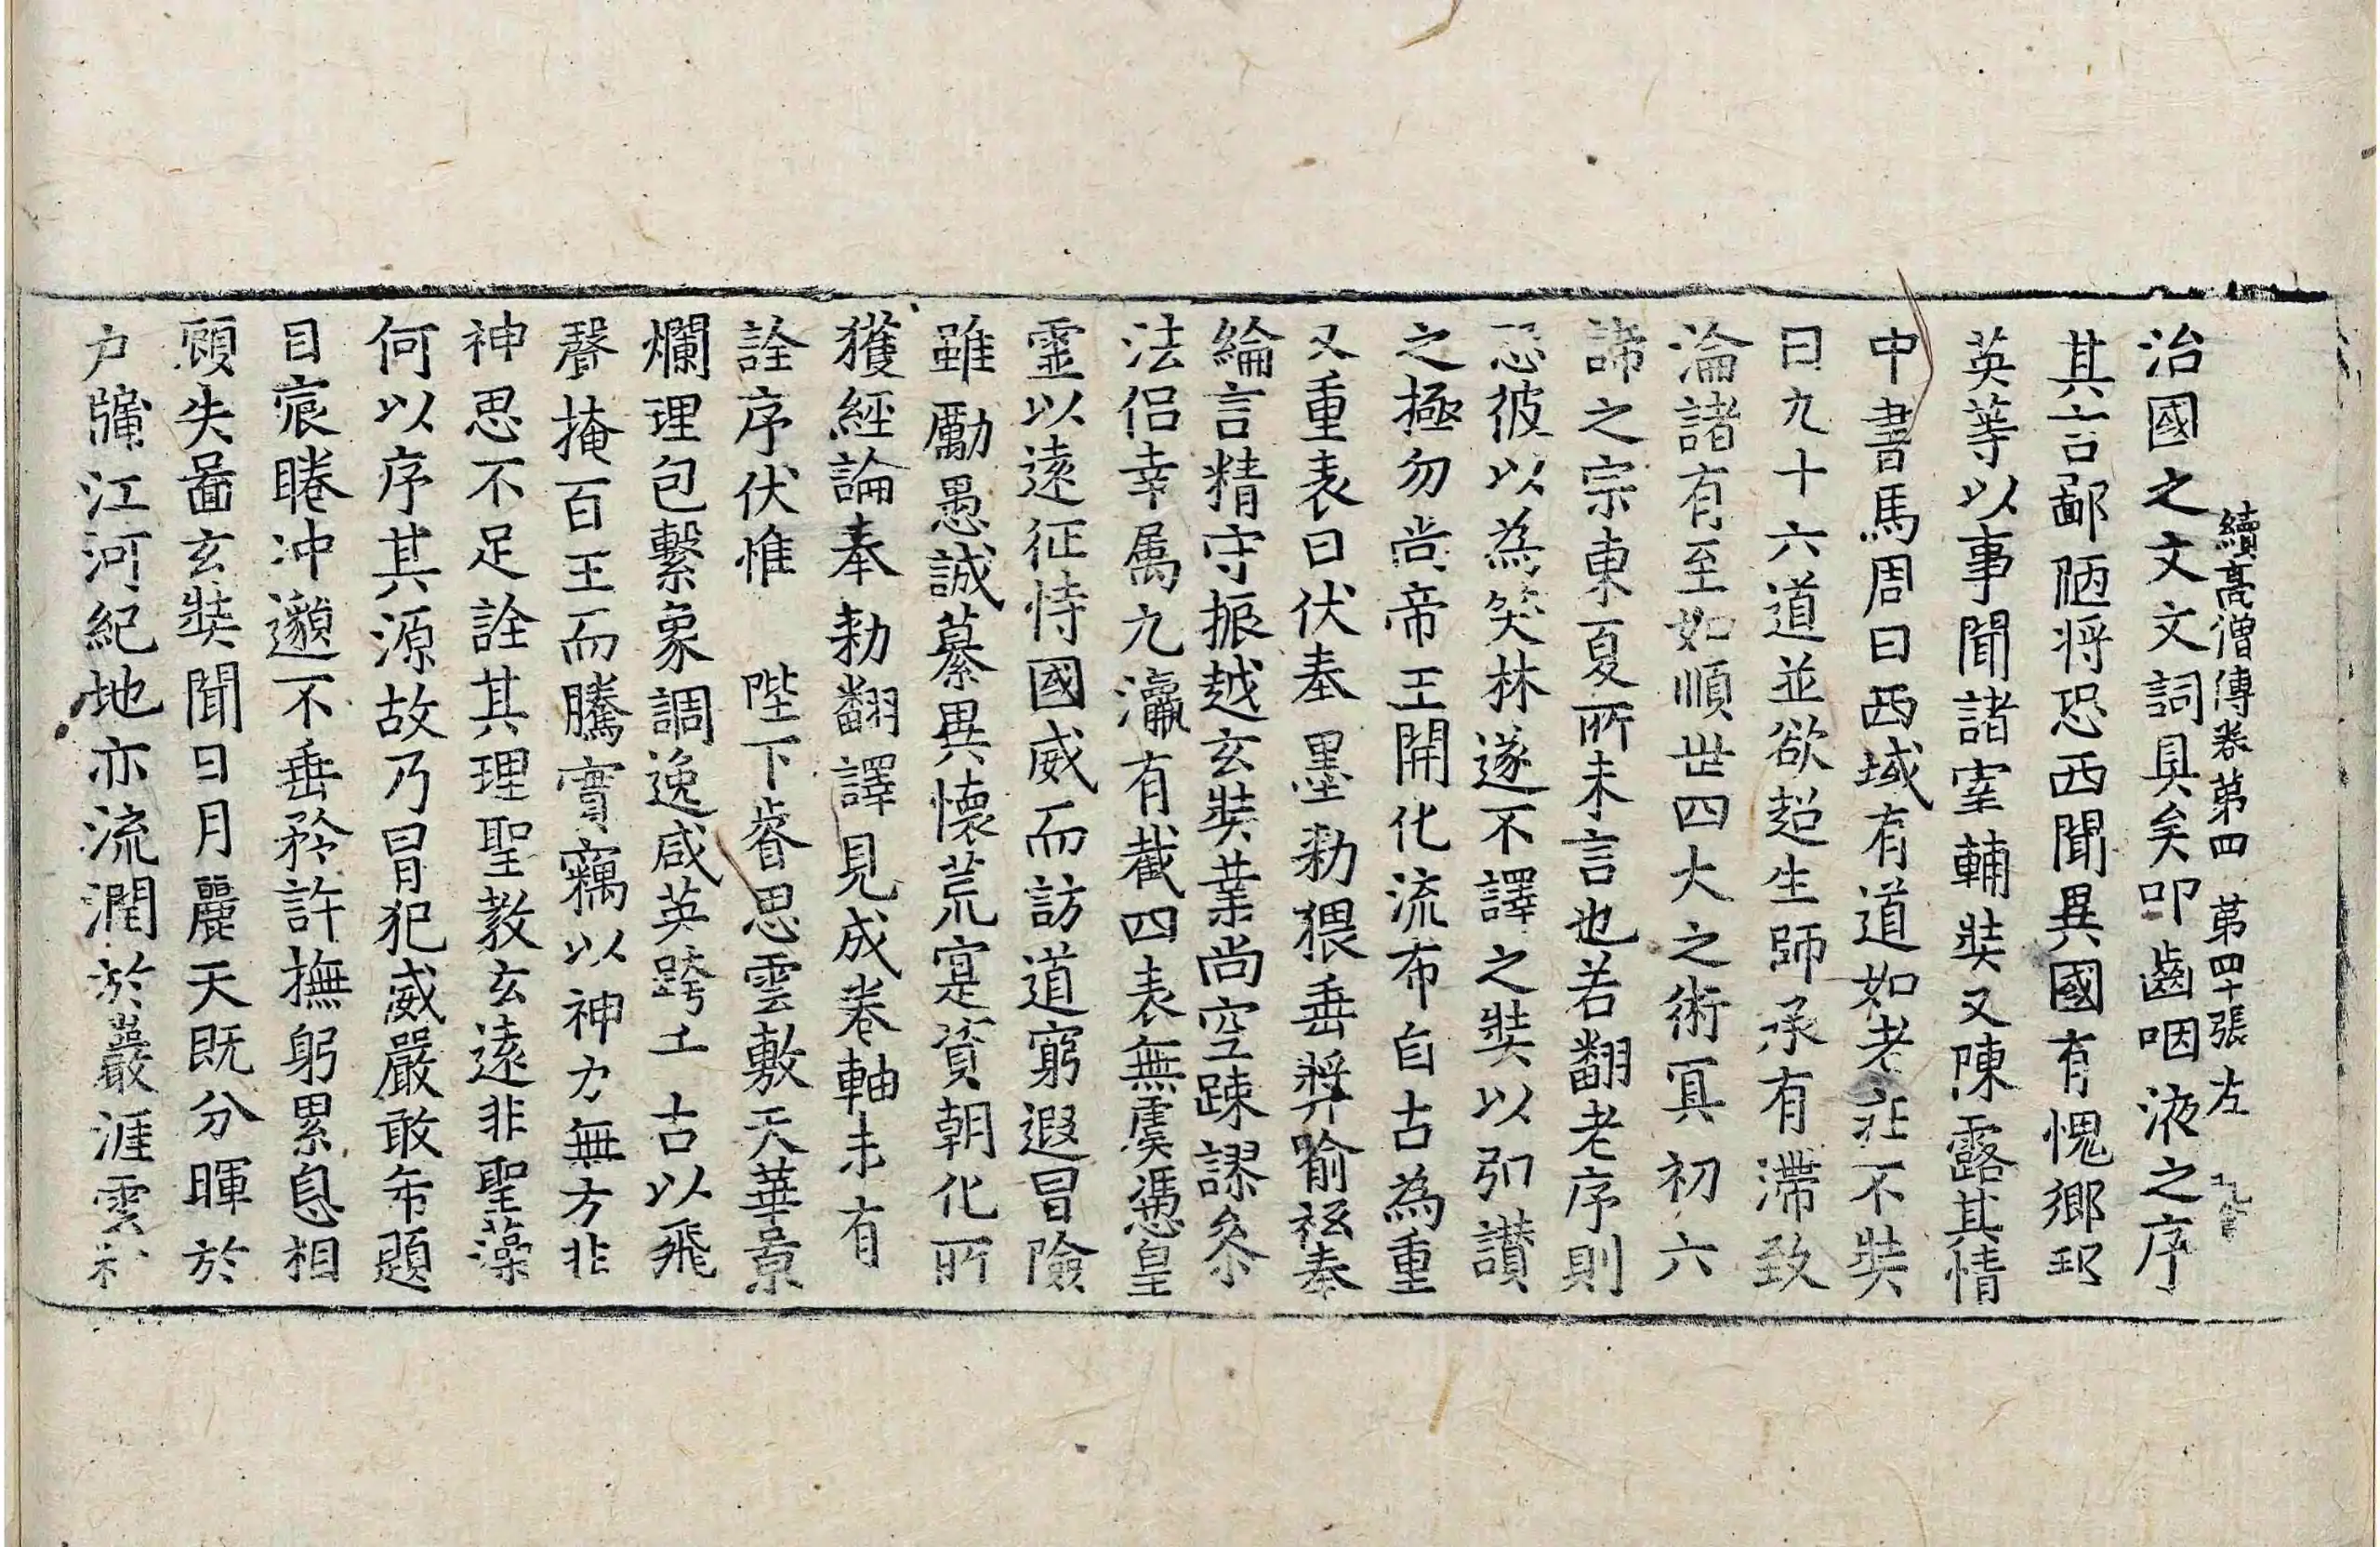 續高僧傳卷第四 第四十張 左
治國之文文詞具矣叩齒咽液之序
其言鄙陋將恐西聞異國有愧鄉邦
英等以事聞諸宰輔奘又陳露其情
中書馬周曰西域有道如老莊不奘
曰九十六道並欲超生師承有滯致
淪諸有至如順世四大之術冥初六
諦之宗東夏所未言也若翻老序則
恐彼以為笑林遂不譯之奘以引讃
之極勿尚帝王開化流布自古為重
又重表曰伏奉墨勑猥垂奬喻祗奉
綸言精守振越玄奘業尚空踈謬叅
法侣幸属九瀛有截四表無虞憑皇
靈以遠征恃國威而訪道窮遐冒險
雖勵愚誠纂異懷荒寔資朝化所
獲經論奉勑翻譯見成卷軸未有
詮序伏惟 陛下睿思雲敷天華景
爛理包繫象調逸咸英跨千古以飛
聲掩百王而騰實竊以神力無方非
神思不足詮其理聖教玄遠非聖藻
何以序其源故乃冒犯威嚴敢希題
目宸睠冲邈不垂矜許撫躬累息相
顧失啚玄奘聞日月麗天既分暉於
户牖江河紀地亦流潤於巖涯雲和